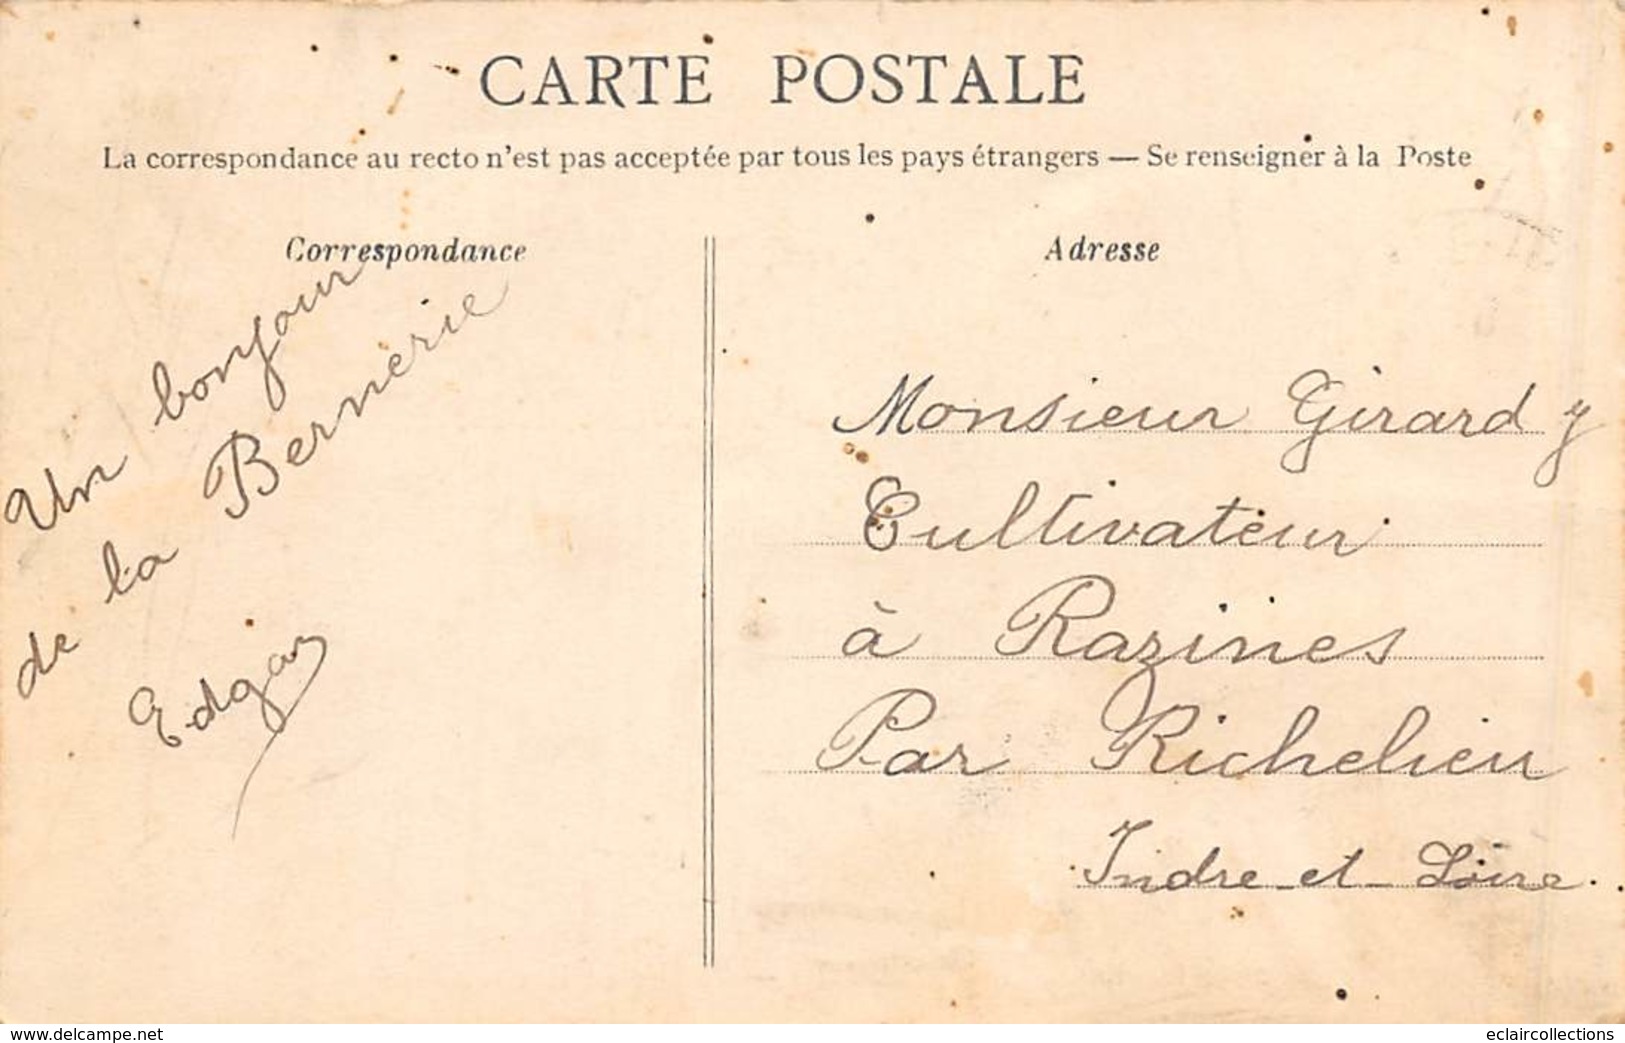 CARTE POSTALE
La correspondance au recto n'est pas acceptée par tous les pays étrangers — Se renseigner à la Poste
Correspondance
Un bonjour
de la Bernerie
Edgar
Adresse
Monsieur Girard
Cultivateur
à Razines
Par Richelieu
Indre-et-Loire.
www.delcampe.net
eclaircollections